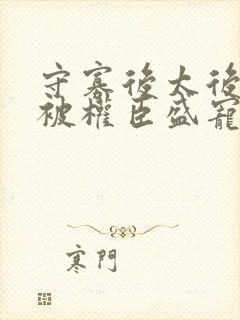 守寡後太後
被權臣盛寵
寒門